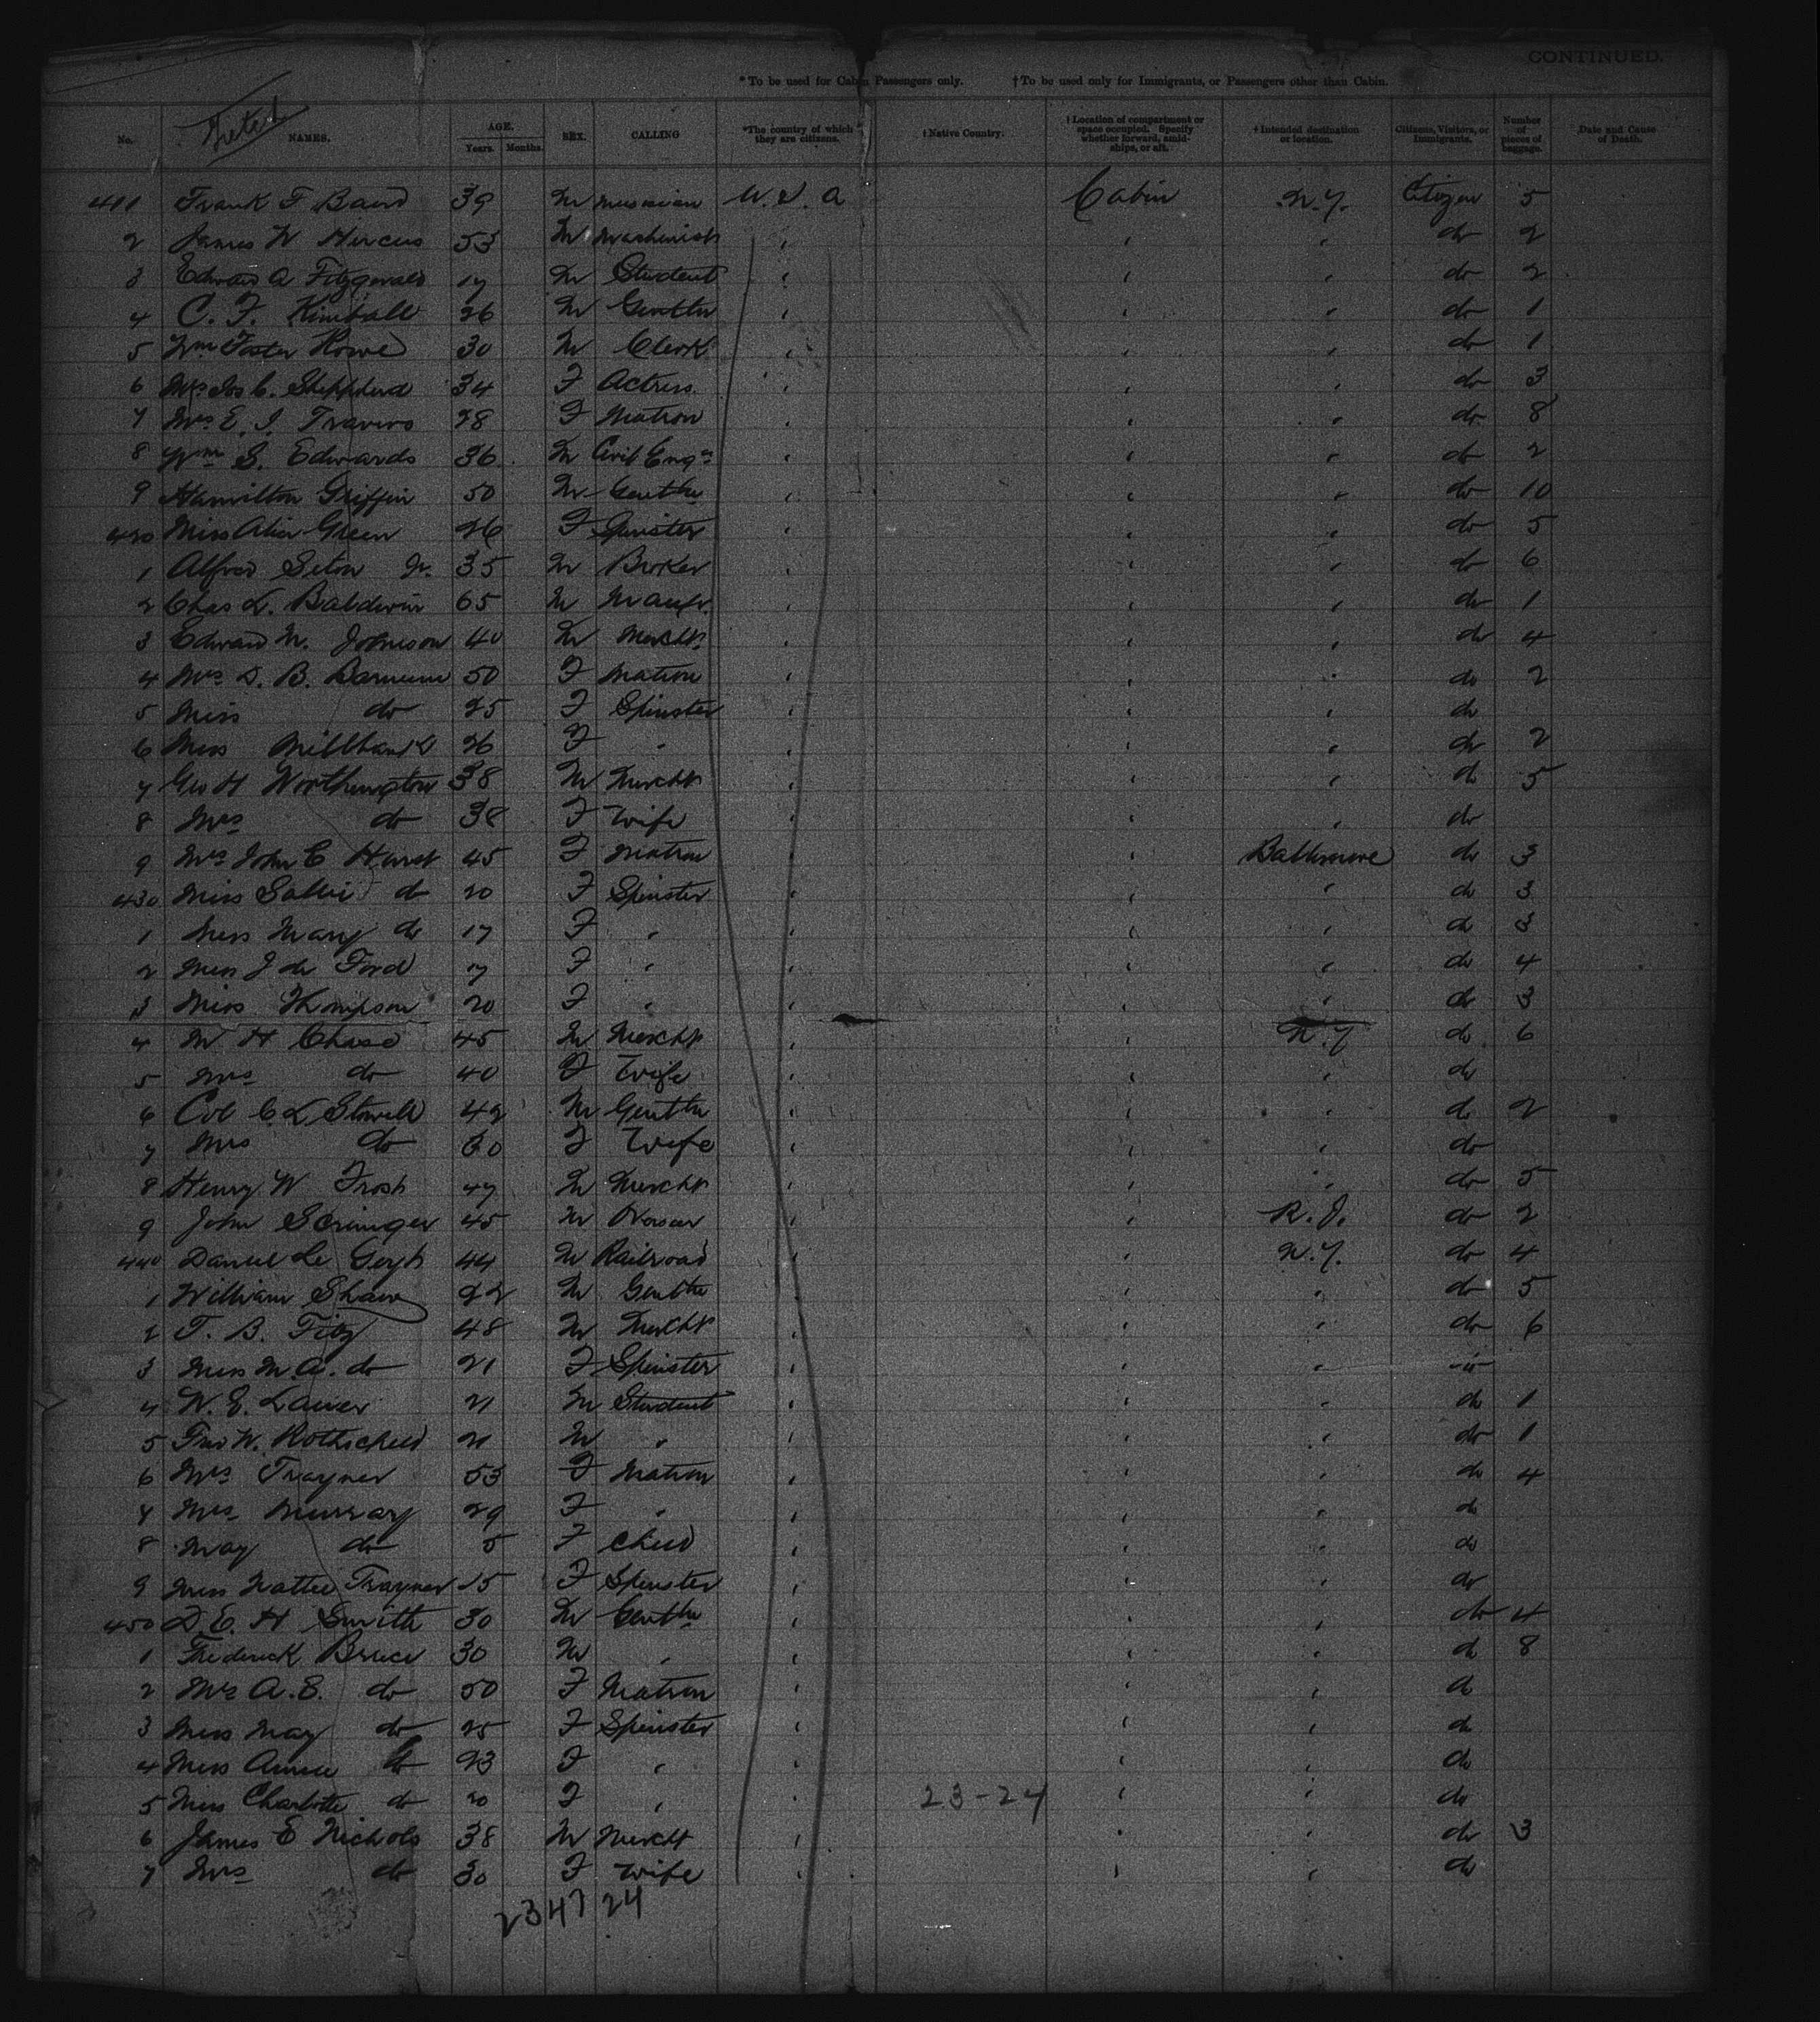 CONTINUED.
*To be used for Cabin Passengers only. †To be used only for Immigrants, or Passengers other than Cabin.
No. NAMES. AGE. Years. Months. SEX. CALLING *The country of which they are citizens. †Native Country. †Location of compartment or space occupied. Specify whether forward, amidships, or aft. †Intended destination or location. Citizens, Visitors, or Immigrants. Number of pieces of baggage. Date and Cause of Death.
411 Frank F Baird 39 M musician U. S. A Cabin N.Y. Citizen 5
2 James W Hircus 53 M Machinist " " " do 2
3 Edward A Fitzgerald 17 M Student " " " do 2
4 C. F. Kimball 26 M Gentln " " " do 1
5 Wm Foster Howe 30 M Clerk " " " do 1
6 Mrs Jos C. Shepherd 34 F Actress " " " do 3
7 Mrs E. J. Travers 28 F Matron " " " do 8
8 Wm S. Edwards 36 M Civil Engr " " " do 2
9 Hamilton Griffin 50 M Gentln " " " do 10
420 Miss Alice Green 26 F Spinster " " " do 5
1 Alfred Seton Jr. 35 M Broker " " " do 6
2 Chas L. Baldwin 65 M Manfr. " " " do 1
3 Edward M. Johnson 40 M Mercht. " " " do 4
4 Mrs D. B. Barnum 50 F Matron " " " do 2
5 Miss do 25 F Spinster " " " do
6 Miss Millbank 26 F " " " " do 2
7 Geo H Worthington 38 M Mercht " " " do 5
8 Mrs do 38 F Wife " " " do
9 Mrs John E Hurst 45 F Matron " " Baltimore do 3
430 Miss Sallie do 20 F Spinster " " " do 3
1 Miss Mary do 17 F " " " " do 3
2 Miss J de Ford 17 F " " " " do 4
3 Miss Thompson 20 F " " " " do 3
4 W H Chase 45 M Mercht " " N.Y do 6
5 Mrs do 40 F Wife " " " do
6 Col C. L Stowell 42 M Gentln " " " do 2
7 Mrs do 30 F Wife " " " do
8 Henry W Frost 47 M Mercht " " " do 5
9 John Scrimger 45 M " " R.I. do 2
440 Daniel Le 44 M Railroad " " N.Y. do 4
1 William Shaw 22 M Gentln " " " do 5
2 T. B. Fitz 48 M Mercht " " " do 6
3 Miss M. A. do 21 F Spinster " " " do
4 W. E. 21 M Student " " " do 1
5 W. Rothschild 21 M " " " " do 1
6 Mrs Trayner 53 F Matron " " " do 4
7 Mrs Murray 29 F " " " " do
8 May do 5 F Child " " " do
9 Miss Hattie Trayner 15 F Spinster " " " do
450 D. E. H Smith 30 M Gentln " " " do 4
1 Frederick Bruce 30 M " " " " do 8
2 Mrs A. B. do 50 F Matron " " " do
3 Miss May do 25 F Spinster " " " do
4 Miss do 23 F " " " " do
5 Miss Charlotte do 20 F " " 23-24 " " do
6 James E Nichols 38 M Mercht " " " do 3
7 Mrs do 30 F Wife " " " do
2347 24